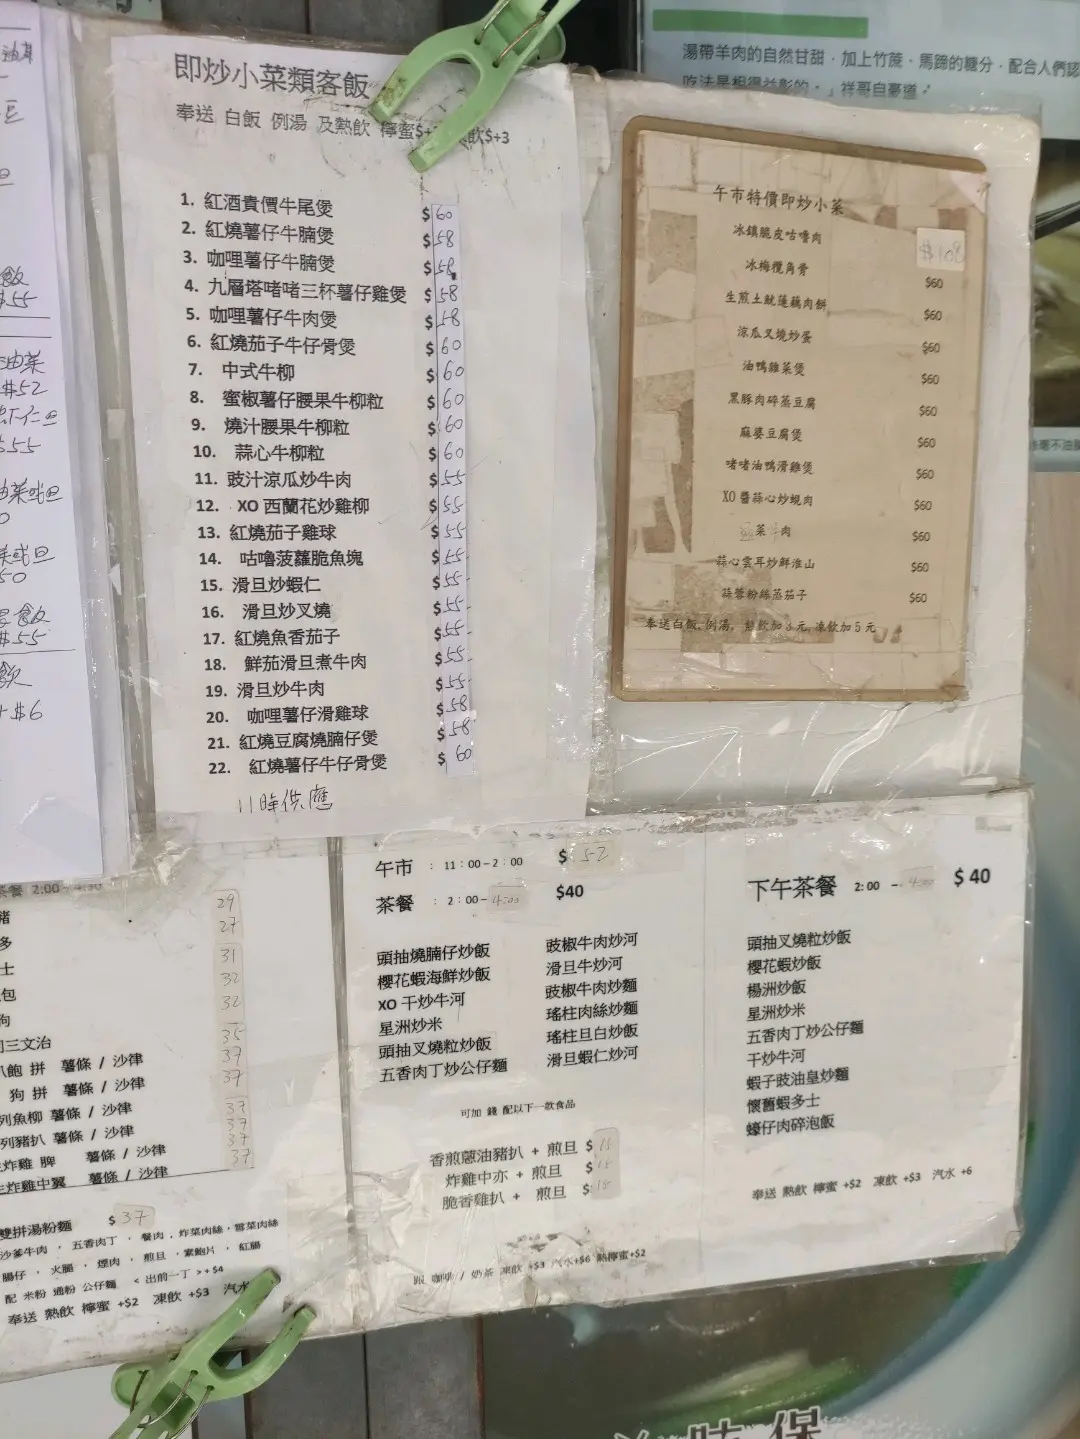 湯帶羊肉的自然甘甜﹐加上竹蔗﹑馬蹄的糖分﹐配合人們認
吃法是相得益彰的。」祥哥自豪道。
即炒小菜類客飯
奉送 白飯 例湯 及熱飲 檸蜜$+ 飲$+3
1. 紅酒貴價牛尾煲 $60
2. 紅燒薯仔牛腩煲 $58
3. 咖哩薯仔牛腩煲 $58
4. 九層塔啫啫三杯薯仔雞煲 $58
5. 咖哩薯仔牛肉煲 $58
6. 紅燒茄子牛仔骨煲 $60
7. 中式牛柳 $60
8. 蜜椒薯仔腰果牛柳粒 $60
9. 燒汁腰果牛柳粒 $60
10. 蒜心牛柳粒 $60
11. 豉汁涼瓜炒牛肉 $55
12. XO 西蘭花炒雞柳 $55
13. 紅燒茄子雞球 $55
14. 咕嚕菠蘿脆魚塊 $55
15. 滑旦炒蝦仁 $55
16. 滑旦炒叉燒 $55
17. 紅燒魚香茄子 $55
18. 鮮茄滑旦煮牛肉 $55
19. 滑旦炒牛肉 $55
20. 咖哩薯仔滑雞球 $58
21. 紅燒豆腐燒腩仔煲 $58
22. 紅燒薯仔牛仔骨煲 $60
11時供應
午市特價即炒小菜
冰鎮脆皮咕嚕肉 $108
冰梅欖角骨 $60
生煎土魷蓮藕肉餅 $60
涼瓜叉燒炒蛋 $60
油鴨雜菜煲 $60
黑豚肉碎蒸豆腐 $60
麻婆豆腐煲 $60
啫啫油鴨滑雞煲 $60
XO醬蒜心炒蜆肉 $60
菜 肉 $60
蒜心雲耳炒鮮淮山 $60
蒜蓉粉絲蒸茄子 $60
奉送白飯,例湯, 熱飲加3元,凍飲加5元
飯
$55
油菜
$52
$55
$55
+$6
茶餐 2:00
豬 29
多 27
士 31
包 32
狗 32
三文治 35
飽 拼 薯條 / 沙律 37
狗 拼 薯條 / 沙律 37
列魚柳 薯條 / 沙律 37
列豬扒 薯條 / 沙律 37
炸雞 脾 薯條 / 沙律 37
炸雞中翼 薯條 / 沙律
雙拼湯粉麵 $37
沙爹牛肉 , 五香肉丁 , 餐肉 , 炸菜肉絲 , 雪菜肉絲
腸仔 , 火腿 , 煙肉 , 煎旦 , 素鮑片 , 紅腸
配 米粉 通粉 公仔麵 < 出前一丁 >+$4
奉送 熱飲 檸蜜 +$2 凍飲 +$3 汽水
午市 : 11:00-2:00 $52
茶餐 : 2:00-4:00 $40
頭抽燒腩仔炒飯 豉椒牛肉炒河
櫻花蝦海鮮炒飯 滑旦牛炒河
XO 干炒牛河 豉椒牛肉炒麵
星洲炒米 瑤柱肉絲炒麵
頭抽叉燒粒炒飯 瑤柱旦白炒飯
五香肉丁炒公仔麵 滑旦蝦仁炒河
可加 錢 配以下一款食品
香煎蔥油豬扒 + 煎旦 $15
炸雞中亦 + 煎旦 $15
脆香雞扒 + 煎旦 $15
跟 咖啡 / 奶茶 凍飲 +$3 汽水+$6 熱檸蜜+$2
下午茶餐 2:00 -4:00 $40
頭抽叉燒粒炒飯
櫻花蝦炒飯
楊洲炒飯
星洲炒米
五香肉丁炒公仔麵
干炒牛河
蝦子豉油皇炒麵
懷舊蝦多士
蠔仔肉碎泡飯
奉送 熱飲 檸蜜 +$2 凍飲 +$3 汽水 +6